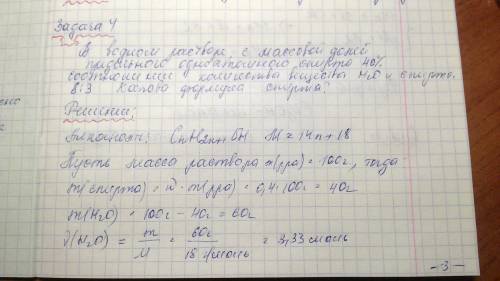 Задача 4
В водном растворе с массовой долей
предельного одноатомного спирта 40%
соотношение количества вещества H₂O и спирта
8:3 Какова формула спирта?
Решение:
CnH2n+1OH M = 14n + 18
Пусть масса раствора m(рра) = 100г, тогда
m(спирта) = ω · m(рра) = 0,4 · 100г = 40г
m(H₂O) = 100г - 40г = 60г
ν(H₂O) = m/M = 60г/18 г/моль = 3,33 моль
-3-